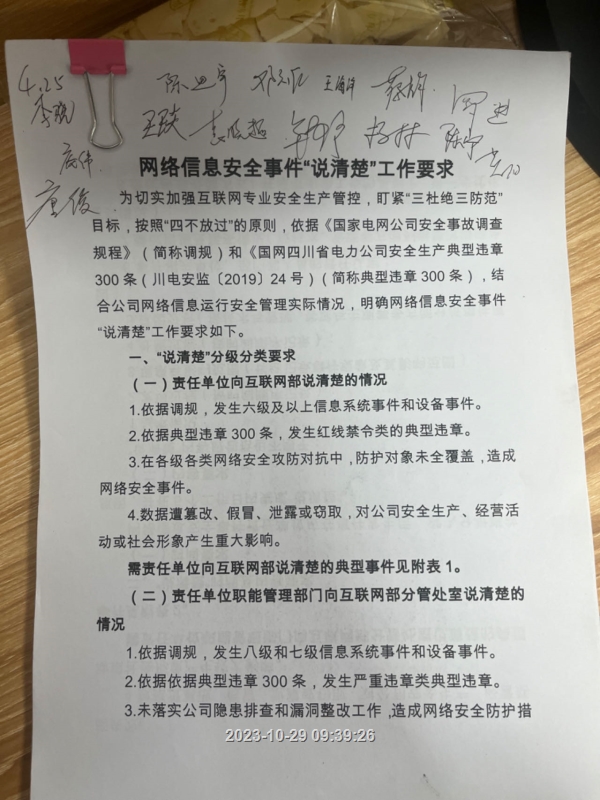 4.25
网络信息安全事件“说清楚”工作要求
为切实加强互联网专业安全生产管控，盯紧“三杜绝三防范”
目标，按照“四不放过”的原则，依据《国家电网公司安全事故调查
规程》（简称调规）和《国网四川省电力公司安全生产典型违章
300条（川电安监〔2019〕24号）（简称典型违章300条），结
合公司网络信息运行安全管理实际情况，明确网络信息安全事件
“说清楚”工作要求如下。
一、“说清楚”分级分类要求
（一）责任单位向互联网部说清楚的情况
1.依据调规，发生六级及以上信息系统事件和设备事件。
2.依据典型违章300条，发生红线禁令类的典型违章。
3.在各级各类网络安全攻防对抗中，防护对象未全覆盖，造成
网络安全事件。
4.数据遭篡改、假冒、泄露或窃取，对公司安全生产、经营活
动或社会形象产生重大影响。
需责任单位向互联网部说清楚的典型事件见附表1。
（二）责任单位职能管理部门向互联网部分管处室说清楚的
情况
1.依据调规，发生八级和七级信息系统事件和设备事件。
2.依据依据典型违章300条，发生严重违章类典型违章。
3.未落实公司隐患排查和漏洞整改工作，造成网络安全防护措
2023-10-29 09:39:26